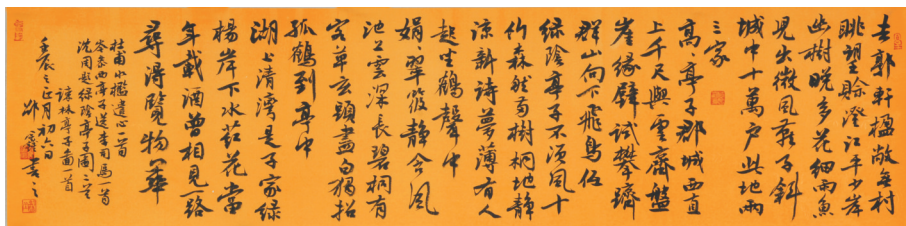 去郭軒楹敞無村
眺望賒澄江平少岸
幽樹晚多花細雨魚
兒出微風燕子斜
城中十萬戶此地兩
三家
高〻亭子郡城西直
上千尺與雲齊盤
崖緣壁試攀躋
群山向下飛鳥低
綠陰亭子不須風十
竹森然萬樹桐地靜
涼新詩夢薄有人
起坐鶴聲中
娟〻翠筱靜含風
池上雲深長碧桐有
客草玄頭盡白獨招
孤鶴到亭中
湖上清灣是子家綠
楊岸下水葓花當
年載酒曾相見一路
尋得覽物華
杜甫水檻遣心一首
岑參西亭子送李司馬一首
沈周題綠陰亭子圖二首
疎林亭子圖一首
壬辰之正月初六日
邵書之